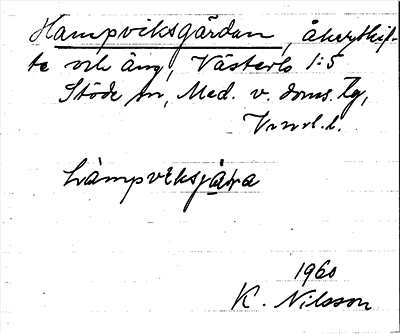 Hampviksgärdan, åkerskif-
te och äng, Västerlo 1:5
Stöde sn, Med. v. doms. tg,
Vnrl. l.
hàmpviksjäṛa
1960
K. Nilsson